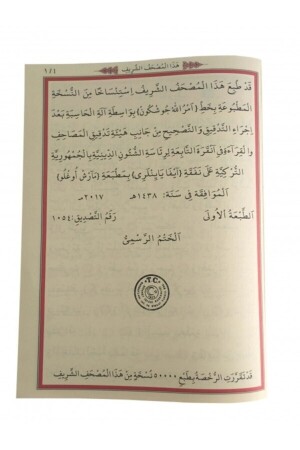 هَذَا الْمُصْحَفُ الشَّرِيفُ
قَدْ طُبِعَ هَذَا الْمُصْحَفُ الشَّرِيفُ اِسْتِنْسَاخًا مِنَ النُّسْخَةِ
الْمَطْبُوعَةِ بِخَطِّ (اَمْرُ اللّٰهِ جُوشْكُونْ) بِوَاسِطَةِ آلَةِ الْحَاسِبَةِ بَعْدَ
إِجْرَاءِ التَّدْقِيقِ وَالتَّصْحِيحِ مِنْ جَانِبِ هَيْئَةِ تَدْقِيقِ الْمَصَاحِفِ
وَالْقِرَاءَةِ فِي أَنْقَرَةَ التَّابِعَةِ لِرِئَاسَةِ الشُّئُونِ الدِّينِيَّةِ بِالْجُمْهُورِيَّةِ
التُّرْكِيَّةِ عَلَى نَفَقَةِ (آيْفَا يَايِنْلَرِى) بِمَطْبَعَةِ (مَازْشْ أُوغْلُو)
الْمُوَافِقَةِ فِي سَنَةِ: ١٤٣٨هـ ٢٠١٧مـ
اَلطَّبْعَةُ الْأُولَى رَقْمُ التَّصْدِيقِ: ١٠٥٤
اَلْخَتْمُ الرَّسْمِىُّ
T.C.
قَدْ تَقَرَّرَتِ الرُّخْصَةُ بِطَبْعِ ٥٠٠٠٠ نُسْخَةٍ مِنْ هَذَا الْمُصْحَفِ الشَّرِيفِ